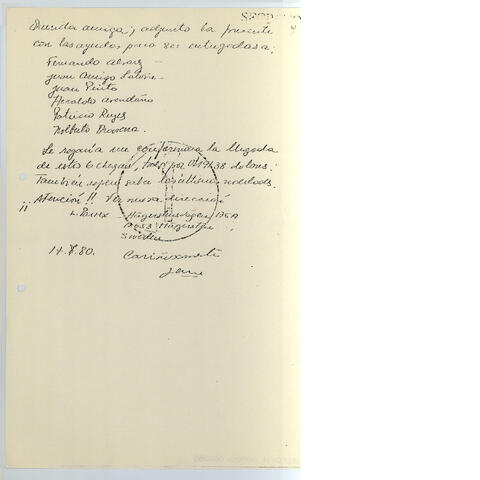 Querida amiga; adjunto la presente
con las ayudas para ser entregadas a:
Fernando Alvarez
Juan Amigo Latorre
Juan Pinto
Heraldo Avendaño
Patricio Reyes
Nolberto
Le rogaría me confirmara la llegada
de estos 6 cheques, todos por 38 dolares.
También espero saber las últimas novedades.
¡¡ Atención!! Ver nueva dirección
L. Hägerstensvägen
Hägersten
Suecia
14. 80. Cariñosamente